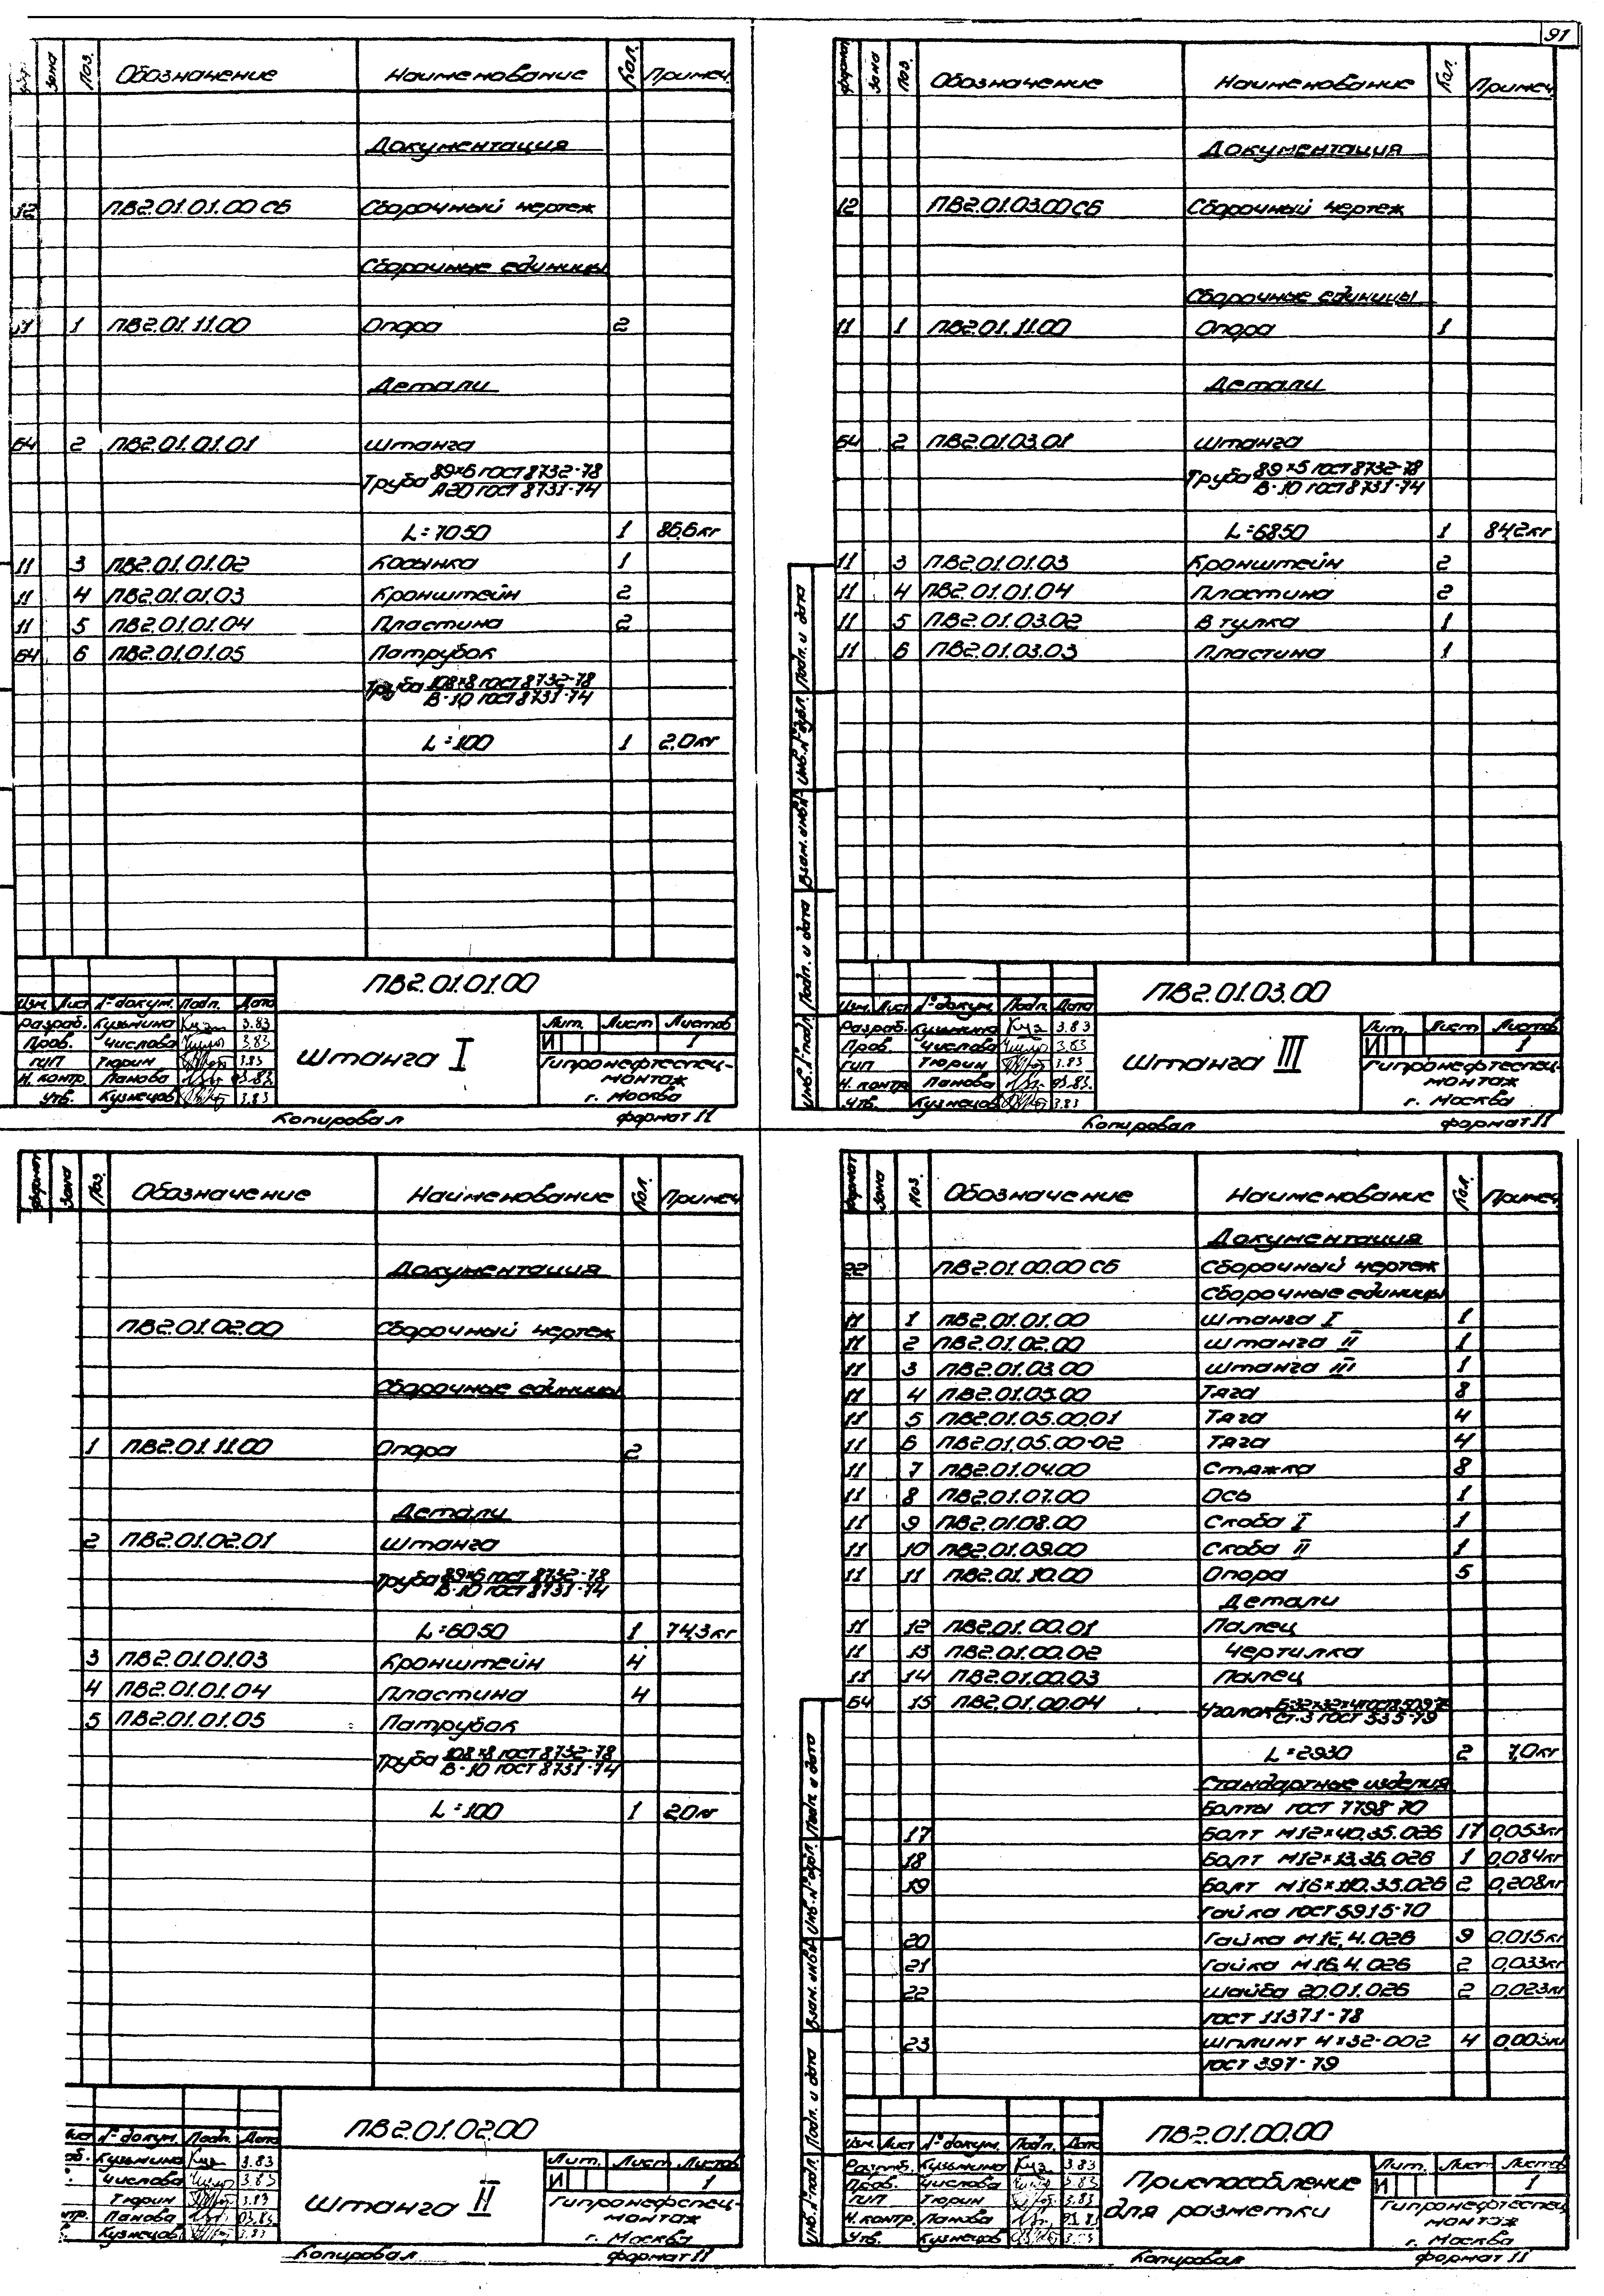 91
формат Зона Поз. Обозначение Наименование Кол. Примеч.
Документация
12 ПВ2.01.01.00 СБ Сборочный чертеж
Сборочные единицы
11 1 ПВ2.01.11.00 Опора 2
Детали
Б4 2 ПВ2.01.01.01 Штанга
Труба 89×6 ГОСТ 8732-78
А20 ГОСТ 8731-74
L=7050 1 86,6кг
11 3 ПВ2.01.01.02 Косынка 1
11 4 ПВ2.01.01.03 Кронштейн 2
11 5 ПВ2.01.01.04 Пластина 2
Б4 6 ПВ2.01.01.05 Патрубок
Труба 108×8 ГОСТ 8732-78
В-10 ГОСТ 8731-74
L=100 1 2,0кг
ПВ2.01.01.00
Изм. Лист № докум. Подп. Дата
Разраб. Кузьмина 3.83
Пров. Числова 3.83
ГИП Тюрин 3.83
Н. контр. Панова 03.83
Утв. Кузнецов 3.83
Штанга I
Лит. Лист Листов
И 1
Гипронефтеспец-
монтаж
г. Москва
Копировал формат 11
формат Зона Поз. Обозначение Наименование Кол. Примеч.
Документация
12 ПВ2.01.03.00 СБ Сборочный чертеж
Сборочные единицы
11 1 ПВ2.01.11.00 Опора 1
Детали
Б4 2 ПВ2.01.03.01 Штанга
Труба 89×5 ГОСТ 8732-78
В-10 ГОСТ 8731-74
L=6850 1 84,2кг
11 3 ПВ2.01.01.03 Кронштейн 2
11 4 ПВ2.01.01.04 Пластина 2
11 5 ПВ2.01.03.02 Втулка 1
11 6 ПВ2.01.03.03 Пластина 1
Инв. № подл. Подп. и дата Взам. инв. № Инв. № дубл. Подп. и дата
ПВ2.01.03.00
Изм. Лист № докум. Подп. Дата
Разраб. Кузьмина 3.83
Пров. Числова 3.83
ГИП Тюрин 3.83
Н. контр. Панова 03.83.
Утв. Кузнецов 3.83
Штанга III
Лит. Лист Листов
И 1
Гипронефтеспец-
монтаж
г. Москва
Копировал формат 11
формат Зона Поз. Обозначение Наименование Кол. Примеч.
Документация
ПВ2.01.02.00 Сборочный чертеж
Сборочные единицы
1 ПВ2.01.11.00 Опора 2
Детали
2 ПВ2.01.02.01 Штанга
Труба 89×6 ГОСТ 8732-78
В-10 ГОСТ 8731-74
L=6050 1 74,3кг
3 ПВ2.01.01.03 Кронштейн 4
4 ПВ2.01.01.04 Пластина 4
5 ПВ2.01.01.05 Патрубок
Труба 108×8 ГОСТ 8732-78
В-10 ГОСТ 8731-74
L=100 1 2,0кг
ПВ2.01.02.00
Лист № докум. Подп. Дата
Кузьмина 3.83
Числова 3.83
Тюрин 3.83
Панова 03.83
Кузнецов 3.83
Штанга II
Лит. Лист Листов
И 1
Гипронефспец-
монтаж
г. Москва
Копировал формат 11
формат Зона Поз. Обозначение Наименование Кол. Примеч.
Документация
22 ПВ2.01.00.00 СБ Сборочный чертеж
Сборочные единицы
11 1 ПВ2.01.01.00 Штанга I 1
11 2 ПВ2.01.02.00 Штанга II 1
11 3 ПВ2.01.03.00 Штанга III 1
11 4 ПВ2.01.05.00 Тяга 8
11 5 ПВ2.01.05.00.01 Тяга 4
11 6 ПВ2.01.05.00-02 Тяга 4
11 7 ПВ2.01.04.00 Стяжка 8
11 8 ПВ2.01.07.00 Ось 1
11 9 ПВ2.01.08.00 Скоба I 1
11 10 ПВ2.01.09.00 Скоба II 1
11 11 ПВ2.01.10.00 Опора 5
Детали
11 12 ПВ2.01.00.01 Палец
11 13 ПВ2.01.00.02 Чертилка
11 14 ПВ2.01.00.03 Палец
Б4 15 ПВ2.01.00.04 Уголок Б-32×32×4 ГОСТ 8509-72
Ст.3 ГОСТ 535-79
L=2930 2 7,0кг
Стандартные изделия
Болты ГОСТ 7798-70
17 Болт М12×40.35.026 17 0,053кг
18 Болт М12×13.36.026 1 0,084кг
19 Болт М16×110.35.026 2 0,208кг
Гайка ГОСТ 5915-70
20 Гайка М12.4.026 9 0,015кг
21 Гайка М16.4.026 2 0,033кг
22 Шайба 20.01.026 2 0,023кг
ГОСТ 11371-78
23 Шплинт 4×32-002 4 0,003кг
ГОСТ 397-79
Инв. № подл. Подп. и дата Взам. инв. № Инв. № дубл. Подп. и дата
ПВ2.01.00.00
Изм. Лист № докум. Подп. Дата
Разраб. Кузьмина 3.83
Пров. Числова 3.83
ГИП Тюрин 3.83
Н. контр. Панова 03.83
Утв. Кузнецов 3.83
Приспособление
для разметки
Лит. Лист Листов
И 1
Гипронефтеспец
монтаж
г. Москва
Копировал формат 11